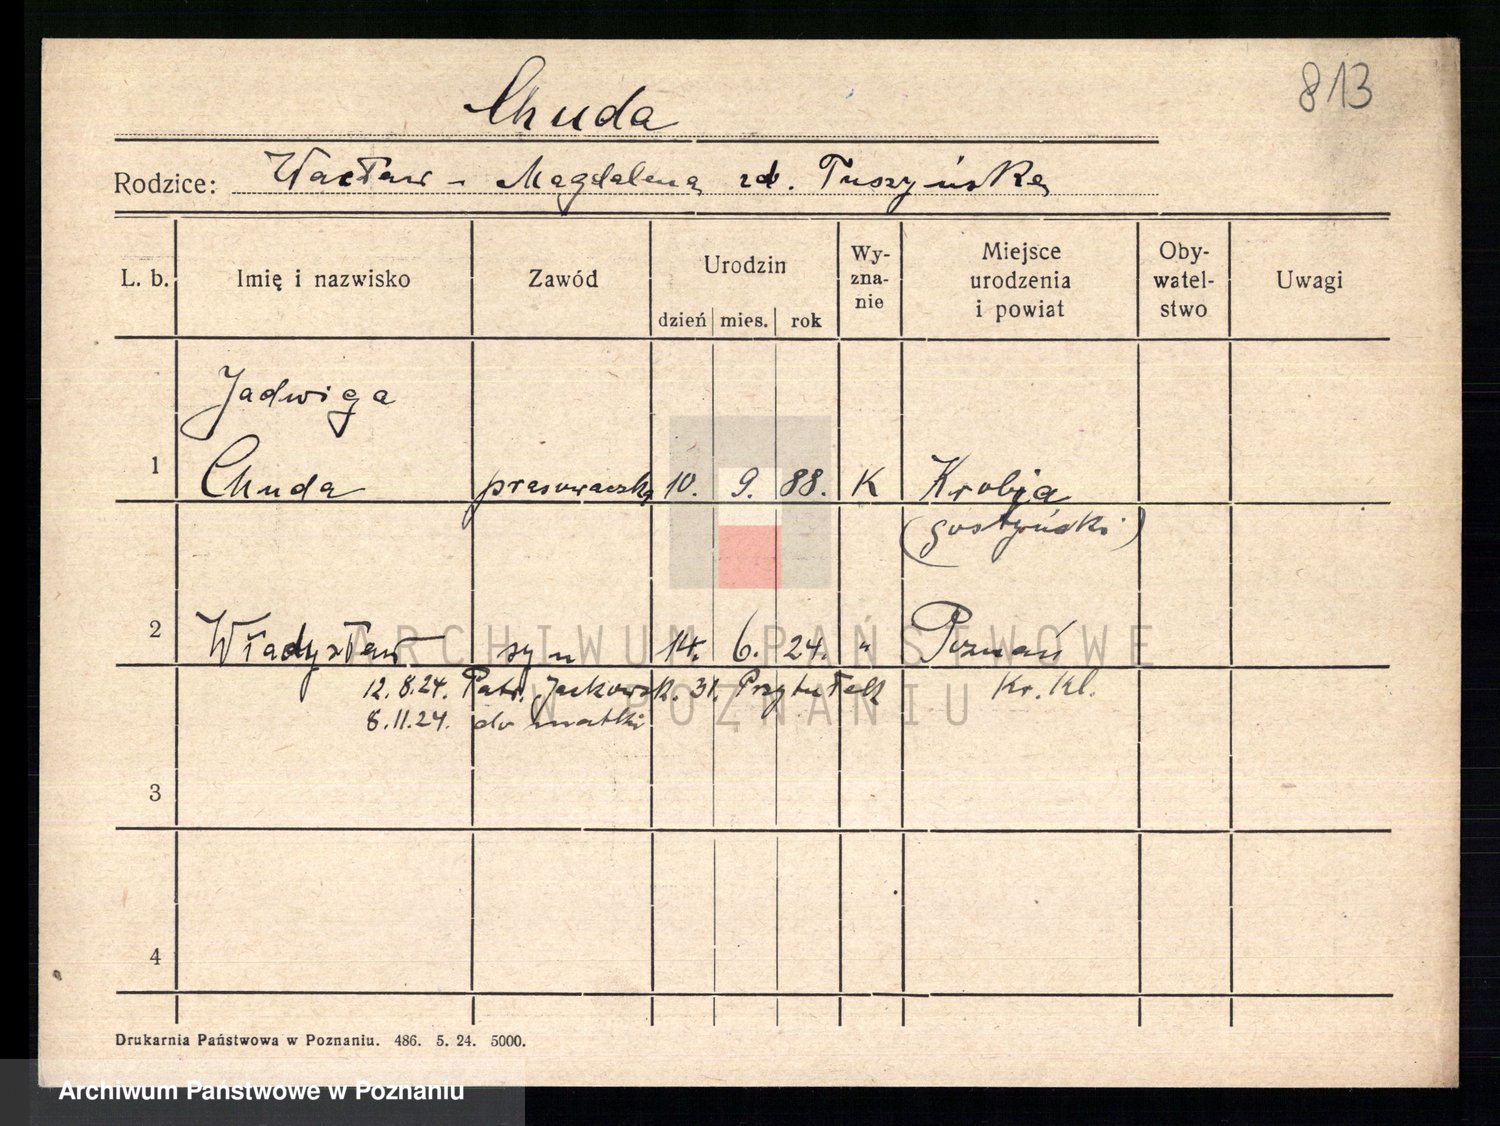 813
Chuda
Rodzice: Wacław - Magdalena zd. Tuszyńska
L. b. Imię i nazwisko Zawód Urodzin dzień mies. rok Wy-zna-nie Miejsce urodzenia i powiat Oby-watel-stwo Uwagi
Jadwiga
1 Chuda prasowaczka 10. 9. 88. K Krobja
(gostyński)
2 Władysław syn 14. 6. 24. " Poznań
12.8.24. Patr. Jackowsk. 31. Przytułek Kr. Kl.
8.11.24. do matki
3
4
Drukarnia Państwowa w Poznaniu. 486. 5. 24. 5000.
ARCHIWUM PAŃSTWOWE
W POZNANIU
Archiwum Państwowe w Poznaniu